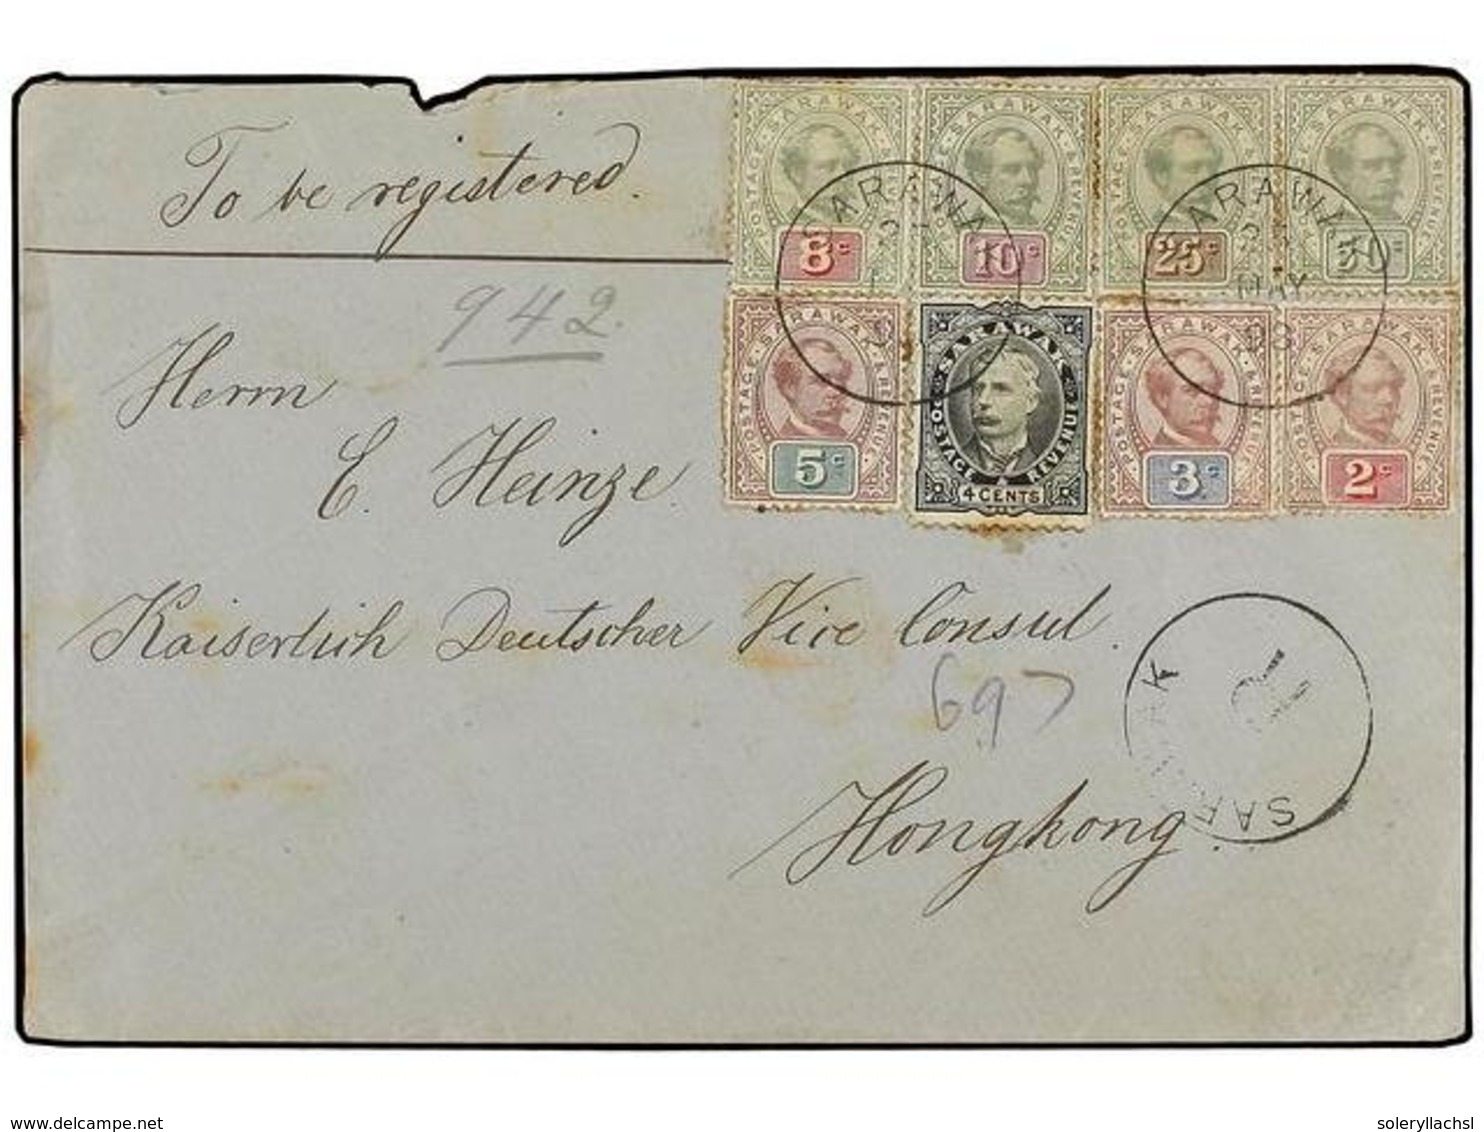 To be registered.
942.
Herrn
E. Heinze.
Kaiserlich Deutscher Vice Consul.
697
Hongkong.
POSTAGE · SARAWAK · & REVENUE
8c
POSTAGE · SARAWAK · & REVENUE
10c
POSTAGE · SARAWAK · & REVENUE
25c
POSTAGE · SARAWAK · & REVENUE
50c
POSTAGE · SARAWAK · & REVENUE
5c
SARAWAK
POSTAGE & REVENUE
4 CENTS
POSTAGE · SARAWAK · & REVENUE
3c
POSTAGE · SARAWAK · & REVENUE
2c
SARAWAK
SARAWAK
MAY
98
SARAWAK
delcampe.net
soleryllachsl